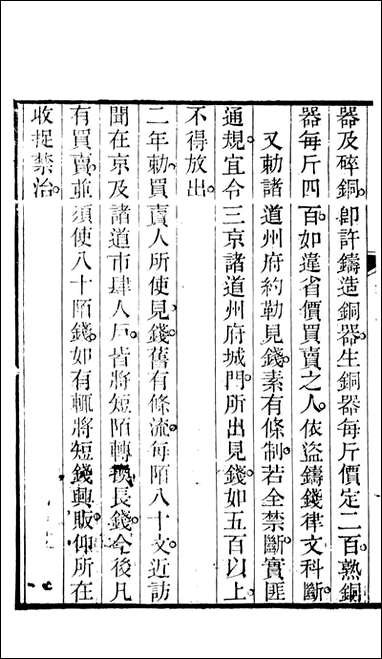 器及碎銅卽許鑄造銅器生銅器每斤價定二百熟銅
器每斤四百如違省價買賣之人依盜鑄錢律文科斷
又勅諸道州府約勒見錢素有條制若全禁斷實匪
通規宜令三京諸道州府城門所出見錢如五百以上
不得放出
二年勅買賣人所使見錢舊有條流每陌八十文近訪
聞在京及諸道市肆人戶皆將短陌轉換長錢今後凡
有買賣並須使八十陌錢如有輒將短錢興販仰所在
收捉禁治